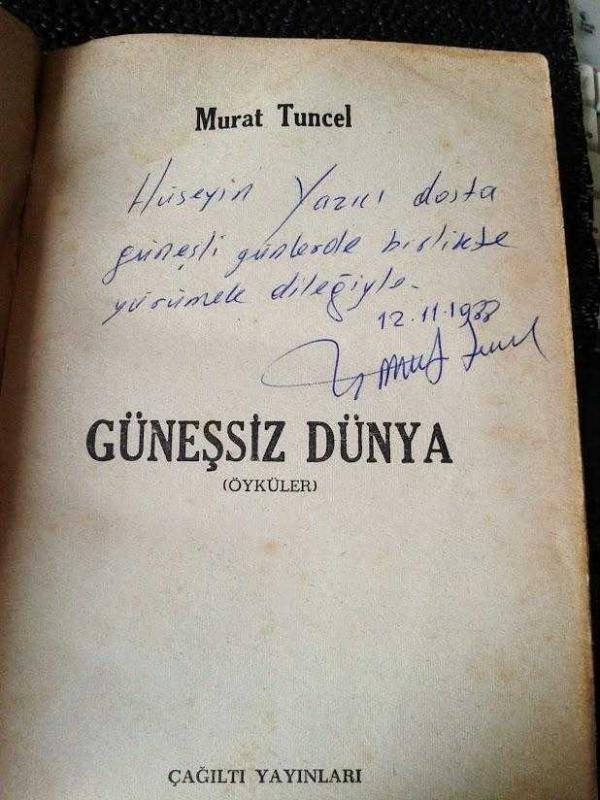 Murat Tuncel
Hüseyin Yazıcı dosta
güneşli günlerde birlikte
yürümek dileğiyle.
12.11.1988
Murat Tuncel
GÜNEŞSİZ DÜNYA
(ÖYKÜLER)
ÇAĞILTI YAYINLARI